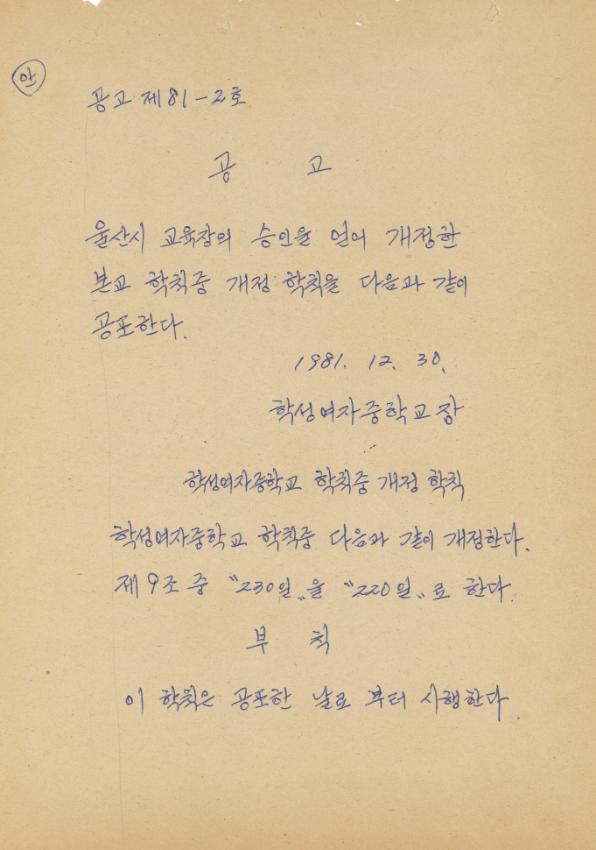 안
공고 제81-2호
공 고
울산시 교육장의 승인을 얻어 개정한
본교 학칙중 개정 학칙을 다음과 같이
공포한다.
1981. 12. 30.
학성여자중학교장
학성여자중학교 학칙중 개정 학칙
학성여자중학교 학칙중 다음과 같이 개정한다.
제9조 중 "230일"을 "220일"로 한다.
부 칙
이 학칙은 공포한 날로 부터 시행한다.